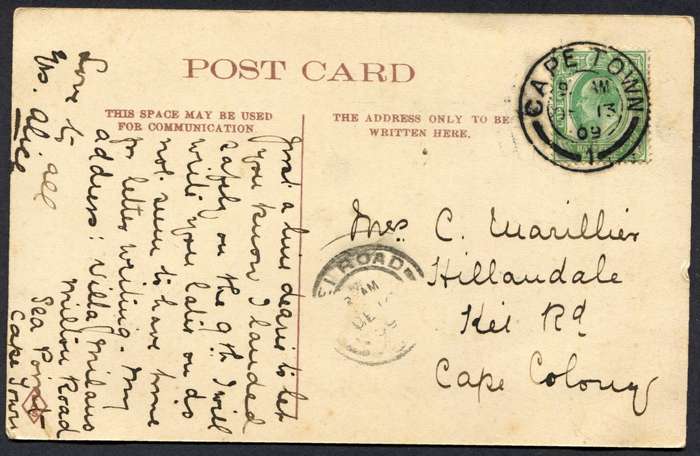 POST CARD
THIS SPACE MAY BE USED
FOR COMMUNICATION.
THE ADDRESS ONLY TO BE
WRITTEN HERE.
CAPE TOWN
13
09
1
Just a line dears to let
you know I landed
safely on the 9th I will
write you later on do
not seem to have time
for letter writing. My
address: Villa Milans
Milton Road
Sea Point
Cape Town
Love to all
Alice
Mrs C. Marillier
Hillandale
Kei Rd
Cape Colony
I ROAD
AM
DE